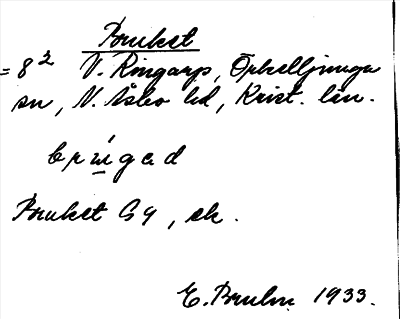 Bruket
= 8² V. Ringarp, Örkelljunga
sn, N. Åsbo hd, Krist. län.
Bruket Gg, ek.
E. Bruhn 1933.